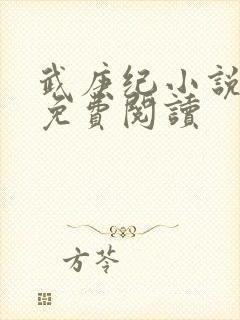 武庚纪小說
免費閱讀
方苓